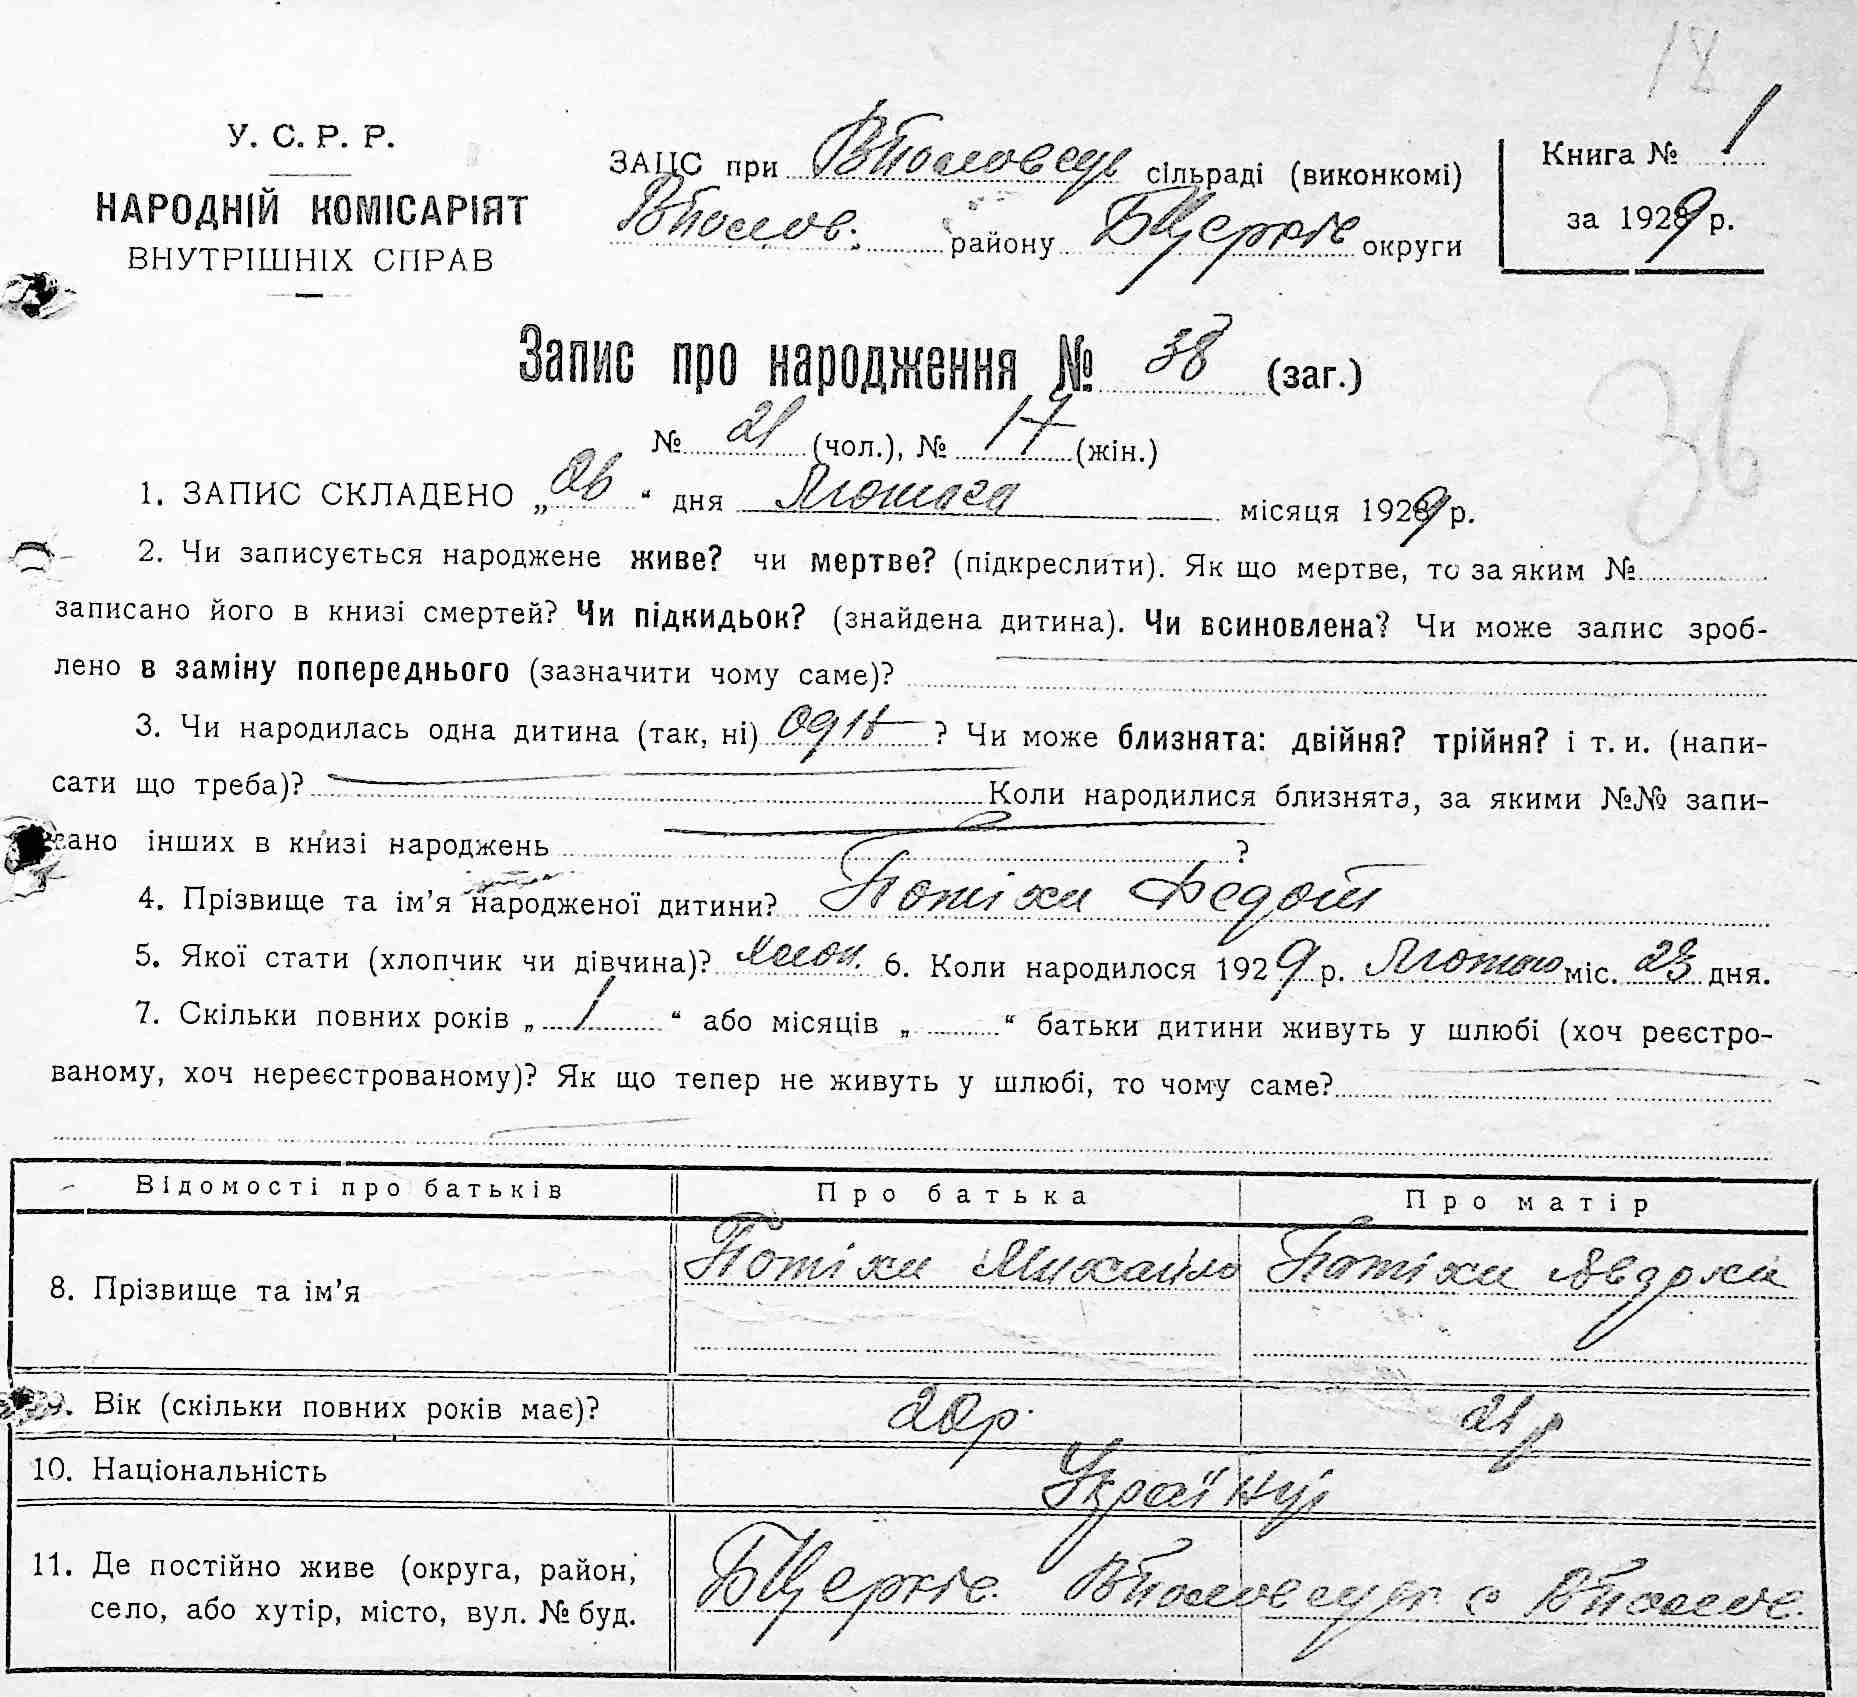 18
У. С. Р. Р.
НАРОДНІЙ КОМІСАРІЯТ
ВНУТРІШНІХ СПРАВ
ЗАЦС при ВПоловец сільраді (виконкомі)
ВПолов. району БЦерків округи
Книга № 1
за 1929 р.
Запис про народження № 38 (заг.)
36
№ 21 (чол.), № 17 (жін.)
1. ЗАПИС СКЛАДЕНО „26“ дня Лютого місяця 1929 р.
2. Чи записується народжене живе? чи мертве? (підкреслити). Як що мертве, то за яким №
записано його в книзі смертей? Чи підкидьок? (знайдена дитина). Чи всиновлена? Чи може запис зроб-
лено в заміну попереднього (зазначити чому саме)?
3. Чи народилась одна дитина (так, ні) одн ? Чи може близнята: двійня? трійня? і т. и. (напи-
сати що треба)? Коли народилися близнята, за якими №№ запи-
сано інших в книзі народжень ?
4. Прізвище та ім’я народженої дитини? Потіха Федот
5. Якої стати (хлопчик чи дівчина)? хлоп. 6. Коли народилося 1929 р. Лютого міс. 23 дня.
7. Скільки повних років „ 1 “ або місяців „ “ батьки дитини живуть у шлюбі (хоч реєстро-
ваному, хоч нереєстрованому)? Як що тепер не живуть у шлюбі, то чому саме?
Відомості про батьків Про батька Про матір
8. Прізвище та ім’я Потіха Михайло Потіха Явдоха
9. Вік (скільки повних років має)? 20р. 21р
10. Національність Українці
11. Де постійно живе (округа, район, БЦерків. ВПоловец с ВПолов.
село, або хутір, місто, вул. № буд.